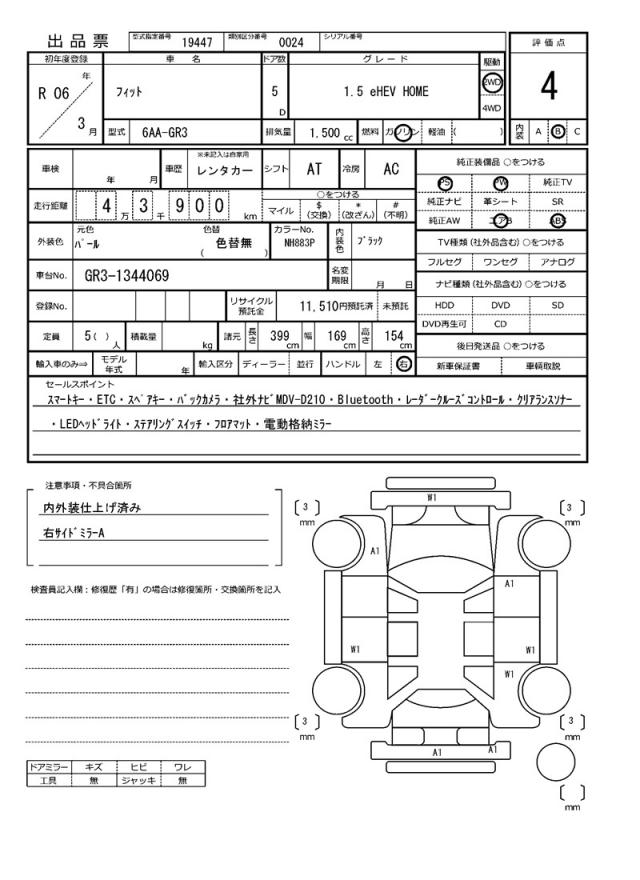 出 品 票 型式指定番号 19447 類別区分番号 0024 シリアル番号
初年度登録 車 名 ドア数 グレード 駆動 評 価 点
R 06 年 3 月 フィット 5 D 1.5 eHEV HOME 2WD 4WD 4
型式 6AA-GR3 排気量 1.500 cc 燃料 ガソリン 軽油 ( ) 内装 A B C
車検 年 月 車歴 ※未記入は自家用 レンタカー シフト AT 冷房 AC 純正装備品 ○をつける
PS PW 純正TV
走行距離 4 万 3 千 9 0 0 km ○をつける
マイル $ (交換) * (改ざん) # (不明) 純正ナビ 革シート SR
純正AW エアB ABS
外装色 元色 パール 色替 色替無 ( ) カラーNo. NH883P 内装色 ブラック
TV種類 (社外品含む) ○をつける
フルセグ ワンセグ アナログ
車台No. GR3-1344069 名変期限 月 日
ナビ種類 (社外品含む) ○をつける
登録No. リサイクル預託金 11,510円預託済 未預託
HDD DVD SD
DVD再生可 CD
定員 5( ) 人 積載量 kg 諸元 長さ 399 cm 幅 169 cm 高さ 154 cm
後日発送品 ○をつける
輸入車のみ⇒ モデル年式 年 輸入区分 ディーラー 並行 ハンドル 左 右
新車保証書 車輌取説
セールスポイント
スマートキー・ETC・スペアキー・バックカメラ・社外ナビMDV-D210・Bluetooth・レーダークルーズコントロール・クリアランスソナー
・LEDヘッドライト・ステアリングスイッチ・フロアマット・電動格納ミラー
注意事項・不具合箇所
内外装仕上げ済み
右サイドミラーA
検査員記入欄：修復歴「有」の場合は修復箇所・交換箇所を記入
W1
[ 3 ] mm
[ 3 ] mm
A1
A1
W1
W1
[ 3 ] mm
[ 3 ] mm
A1
A1
[ ] mm
ドアミラー キズ ヒビ ワレ
工具 無 ジャッキ 無